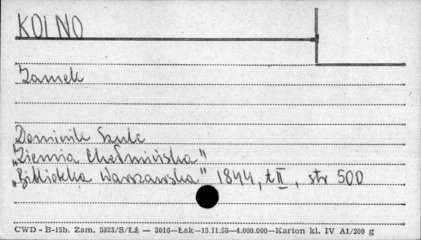 KOLNO
Zamek
Dominik Szulc
„Ziemia Chełmińska"
„Biblioteka Warszawska" 1844, t. II, str 500
CWD - B-15b. Zam. 5823/S/Łź — 3016—Łak—15.11.56—4.000.000—Karton kl. IV A1/200 g